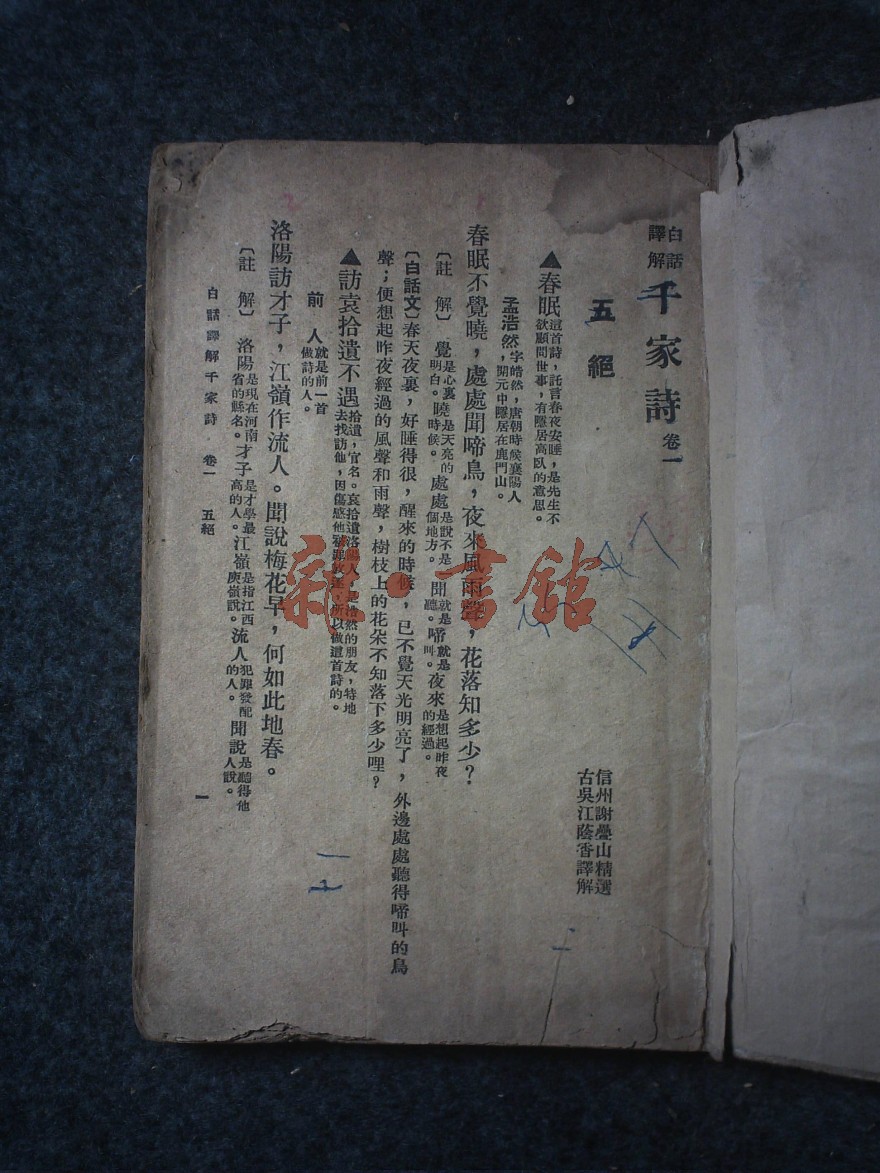 白話譯解千家詩 卷一
信州謝疊山精選
古吳江蔭香譯解
五絕
▲春眠 這首詩，託言春夜安睡，是先生不欲顧問世事，有隱居高臥的意思。
孟浩然 字皓然，唐朝時候襄陽人，開元中隱居在鹿門山。
春眠不覺曉，處處聞啼鳥，夜來風雨聲，花落知多少？
〔註 解〕覺是心裏明白。曉是天亮的時候。處處是說不是一個地方。聞就是聽。啼就是叫。夜來是想起昨夜的經過。
〔白話文〕春天夜裏，好睡得很，醒來的時候，已不覺天光明亮了，外邊處處聽得啼叫的鳥
聲；便想起昨夜經過的風聲和雨聲，樹枝上的花朵不知落下多少哩？
▲訪袁拾遺不遇 拾遺，官名。袁拾遺洛陽人，是浩然的朋友，特地去找訪他，因傷感他犯罪放逐，所以做這首詩的。
前 人 就是前一首做詩的人。
洛陽訪才子，江嶺作流人。聞說梅花早，何如此地春。
〔註 解〕洛陽是現在河南省的縣名。才子是才學最高的人。江嶺是指江西庾嶺說。流人犯罪發配的人。聞說是聽得他人說。
白話譯解千家詩 卷一 五絕
一
雜·書館